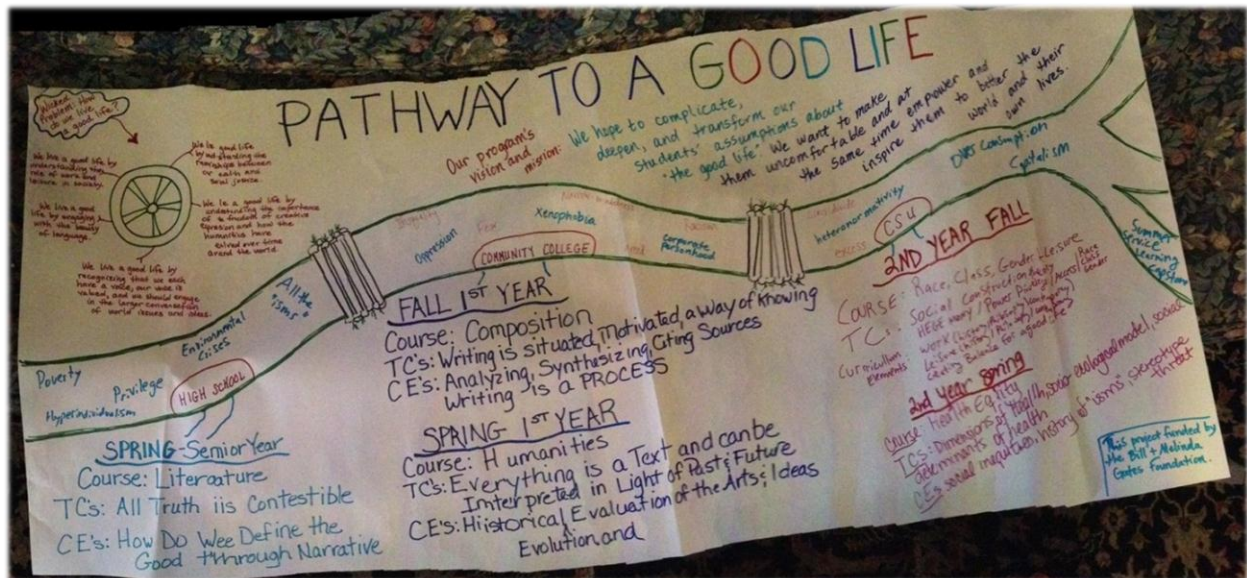 PATHWAY TO A GOOD LIFE
Wicked
Problem: How
do we live
a good life?
We live a good life by
understanding the
role of work and
leisure in society.
We live a good
life by engaging
with the beauty
of language.
We live a good life by
recognizing that we each
have a voice, our voice is
valued, and we should engage
in the larger conversation
of world issues and ideas.
We is a good life
the
between
health and
social justice.
We is a good life by
the importance
of a of creative
and how the
humanities have
over time
the world.
Our program's
vision and
mission:
We hope to complicate,
deepen, and transform our
students' assumptions about
"the good life" We want to make
them uncomfortable and at
the same time empower and
inspire them to better the
world and their
own lives.
Poverty
Hyperindividualism
Privilege
HIGH SCHOOL
Environmental
Crises
All the
"isms"
Oppression
Fear
Xenophobia
COMMUNITY COLLEGE
Racism
Corporate
Personhood
heteronormativity
excess
CSU
Consumption
Capitalism
Summer
Service
Learning
Capstone
SPRING-Senior Year
Course: Literoature
TC's: All Truth iis Contestible
CE's: How Do Wee Define the
Good tthrough Narrative
FALL 1ST YEAR
Course: Composition
TC's: Writing is situated, motivated, a way of knowing
CE's: Analyzing, Synthesizing, Citing Sources
Writing is a PROCESS
SPRING 1ST YEAR
Course: Humanities
TC's: Everything is a Text and can be
Interpreted in Light of Past & Future
CE's: Hiistorical Evaluation of the Arts & Ideas
Evolution and
2ND YEAR FALL
COURSE: Race, Class, Gender & Leisure
TC's: Social Construction
Race
Class
Gender
Curriculum
Elements
2nd Year Spring
Course: Health Equity
TCs: Dimensions of Health, socio-ecological model, social
determinants of health
CE's social inequities, history of "isms", stereotype
threat
This project funded by
the Bill + Malinda
Gates Foundation.